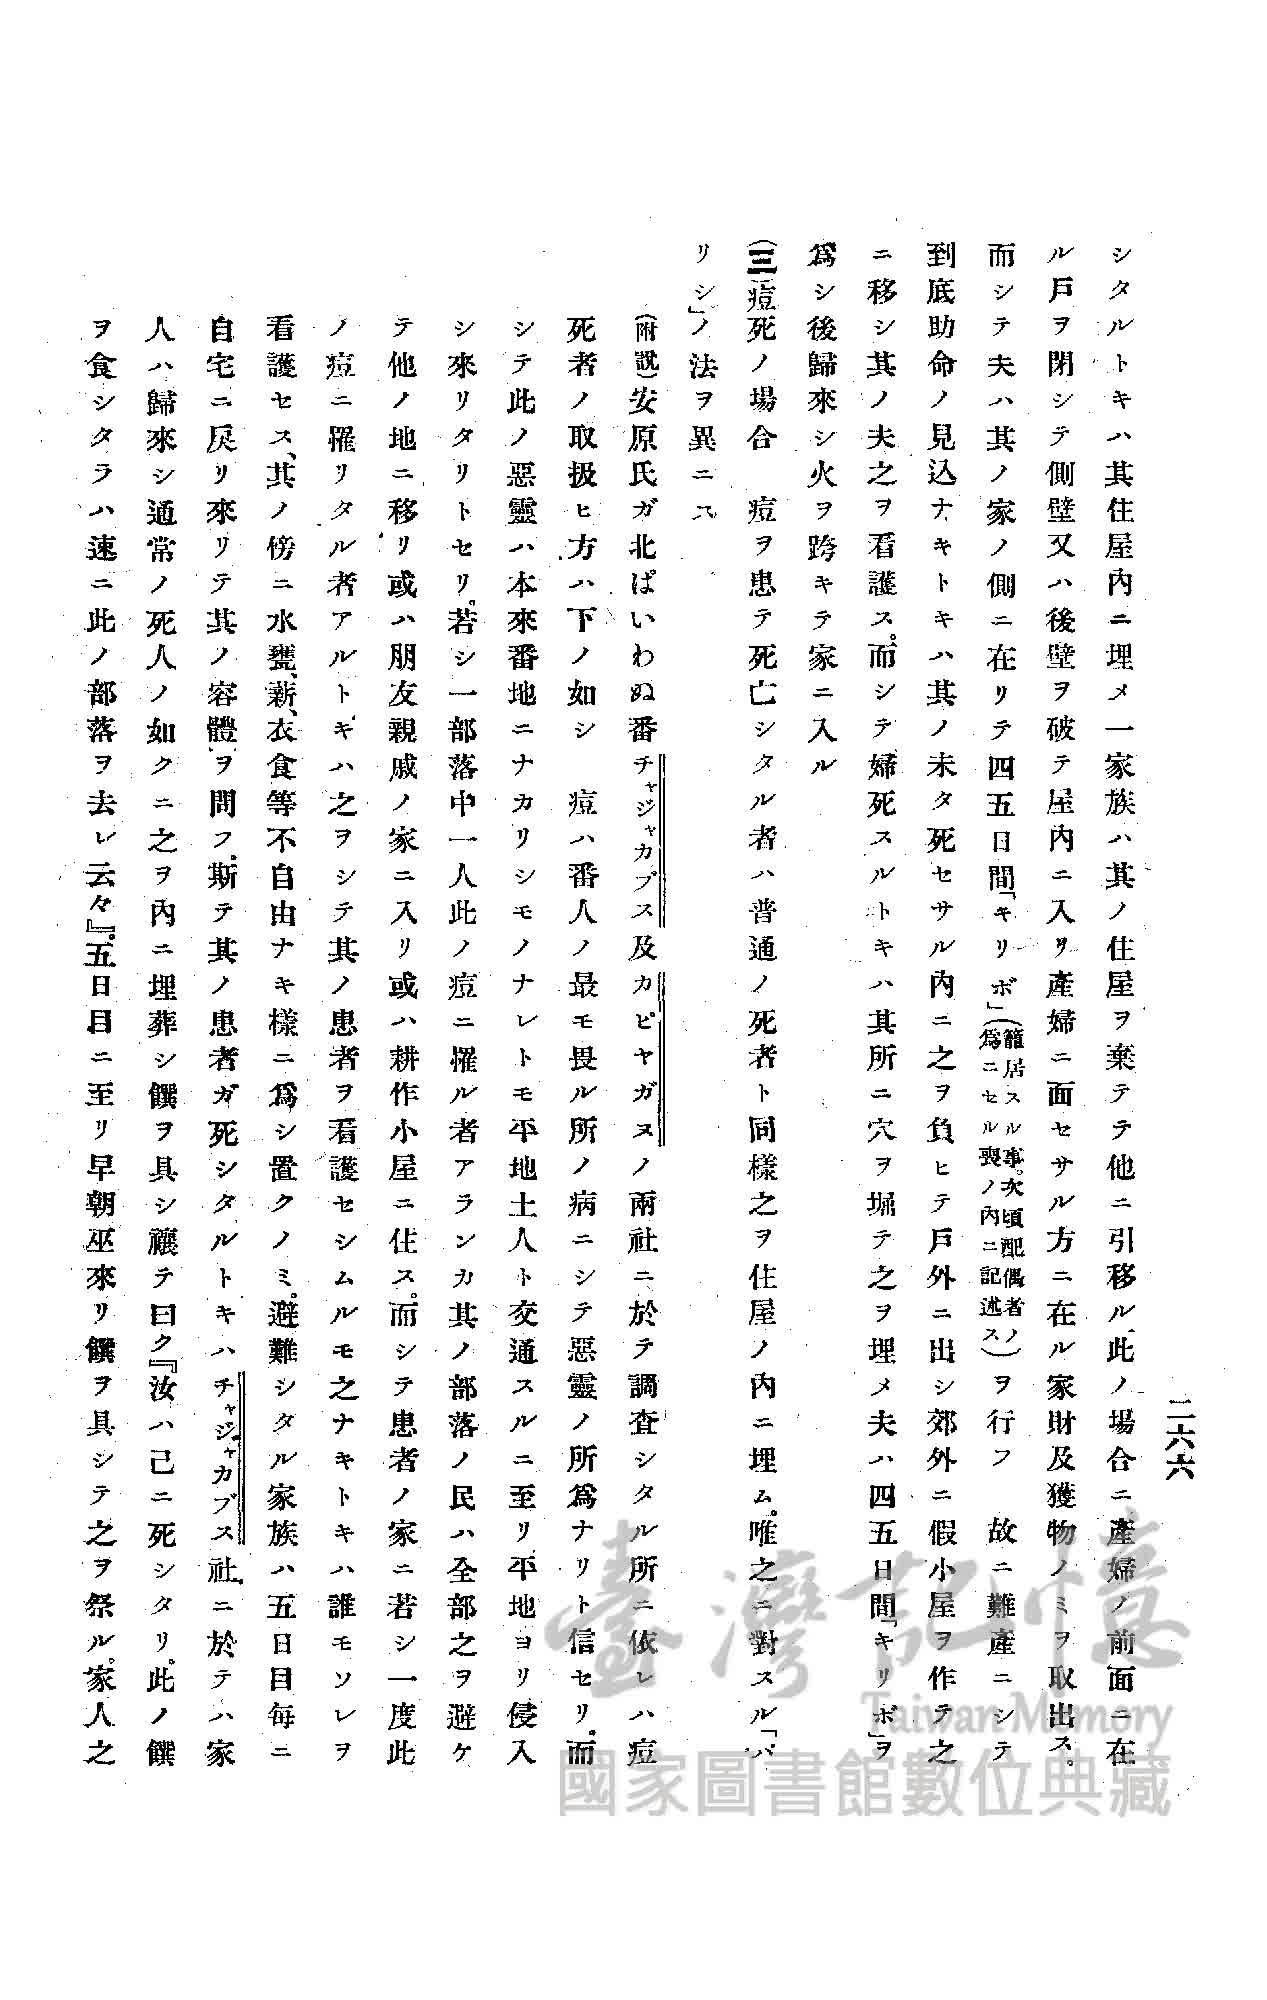 二六六
シタルトキハ其住屋內ニ埋メ一家族ハ其ノ住屋ヲ棄テテ他ニ引移ル此ノ場合ニ產婦ノ前面ニ在
ル戸ヲ閉シテ側壁又ハ後壁ヲ破テ屋內ニ入リ產婦ニ面セサル方ニ在ル家財及獲物ノミヲ取出ス。
而シテ夫ハ其ノ家ノ側ニ在リテ四五日間「キリボ」(籠居スル事。次頃配偶者ノ爲ニセル喪ノ內ニ記述ス)ヲ行フ 故ニ難產ニシテ
到底助命ノ見込ナキトキハ其ノ未タ死セサル內ニ之ヲ負ヒテ戸外ニ出シ郊外ニ假小屋ヲ作テ之
ニ移シ其ノ夫之ヲ看護ス。而シテ婦死スルトキハ其所ニ穴ヲ堀テ之ヲ埋メ夫ハ四五日間「キリボ」ヲ
爲シ後歸來シ火ヲ跨キテ家ニ入ル
(三)痘死ノ場合 痘ヲ患テ死亡シタル者ハ普通ノ死者ト同樣之ヲ住屋ノ內ニ埋ム。唯之ニ對スル「パ
リシ」ノ法ヲ異ニス
(附說)安原氏ガ北ぱいわぬ番チャジャカブス及カピヤガヌノ兩社ニ於テ調査シタル所ニ依レハ痘
死者ノ取扱ヒ方ハ下ノ如シ 痘ハ番人ノ最モ畏ル所ノ病ニシテ惡靈ノ所爲ナリト信セリ。而
シテ此ノ惡靈ハ本來番地ニナカリシモノナレトモ平地土人ト交通スルニ至リ平地ヨリ侵入
シ來リタリトセリ。若シ一部落中一人此ノ痘ニ罹ル者アランカ其ノ部落ノ民ハ全部之ヲ避ケ
テ他ノ地ニ移リ或ハ朋友親戚ノ家ニ入リ或ハ耕作小屋ニ住ス。而シテ患者ノ家ニ若シ一度此
ノ痘ニ罹リタル者アルトキハ之ヲシテ其ノ患者ヲ看護セシムルモ之ナキトキハ誰モソレヲ
看護セス、其ノ傍ニ水甕、薪、衣食等不自由ナキ樣ニ爲シ置クノミ。避難シタル家族ハ五日目每ニ
自宅ニ戾リ來リテ其ノ容體ヲ問フ。斯テ其ノ患者ガ死シタルトキハチャジャカブス社ニ於テハ家
人ハ歸來シ通常ノ死人ノ如クニ之ヲ內ニ埋葬シ饌ヲ具シ禳テ曰ク『汝ハ己ニ死シタリ。此ノ饌
ヲ食シタラハ速ニ此ノ部落ヲ去レ云々』。五日目ニ至リ早朝巫來リ饌ヲ具シテ之ヲ祭ル。家人之
臺灣記憶
Taiwan Memory
國家圖書館數位典藏